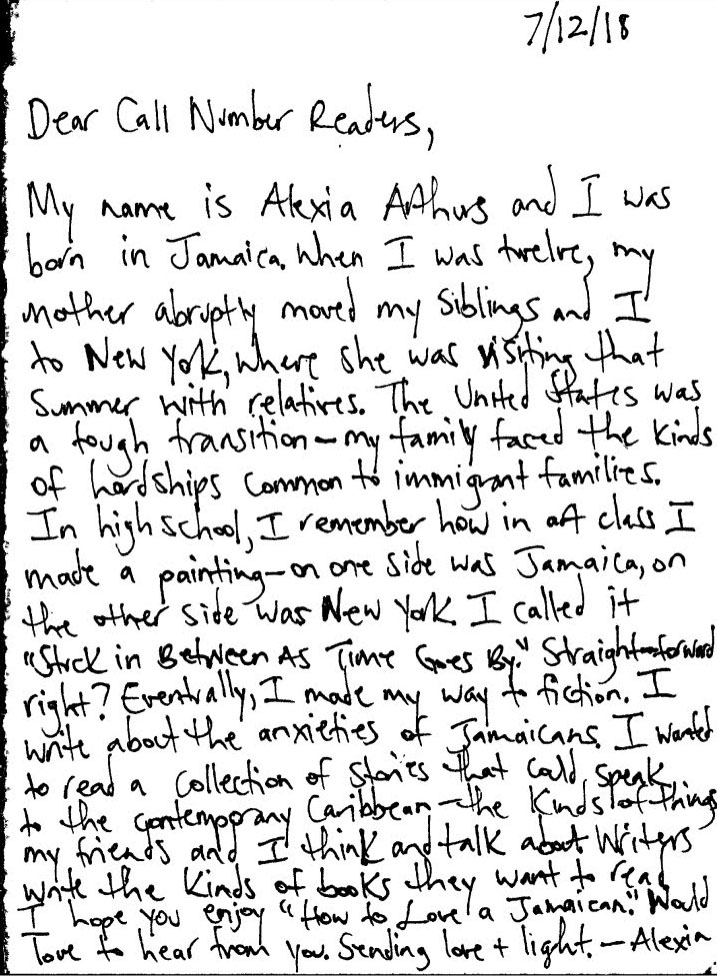 7/12/18
Dear Call Number Readers,
My name is Alexia Arthurs and I was
born in Jamaica. When I was twelve, my
mother abruptly moved my siblings and I
to New York, where she was visiting that
summer with relatives. The United States was
a tough transition—my family faced the kinds
of hardships common to immigrant families.
In high school, I remember how in art class I
made a painting—on one side was Jamaica, on
the other side was New York. I called it
"Stuck in Between As Time Goes By." Straight-forward
right? Eventually, I made my way to fiction. I
write about the anxieties of Jamaicans. I wanted
to read a collection of stories that could speak
to the contemporary Caribbean—the kinds of things
my friends and I think and talk about. Writers
write the kinds of books they want to read.
I hope you enjoy "How to Love a Jamaican." Would
love to hear from you. Sending love + light. — Alexia